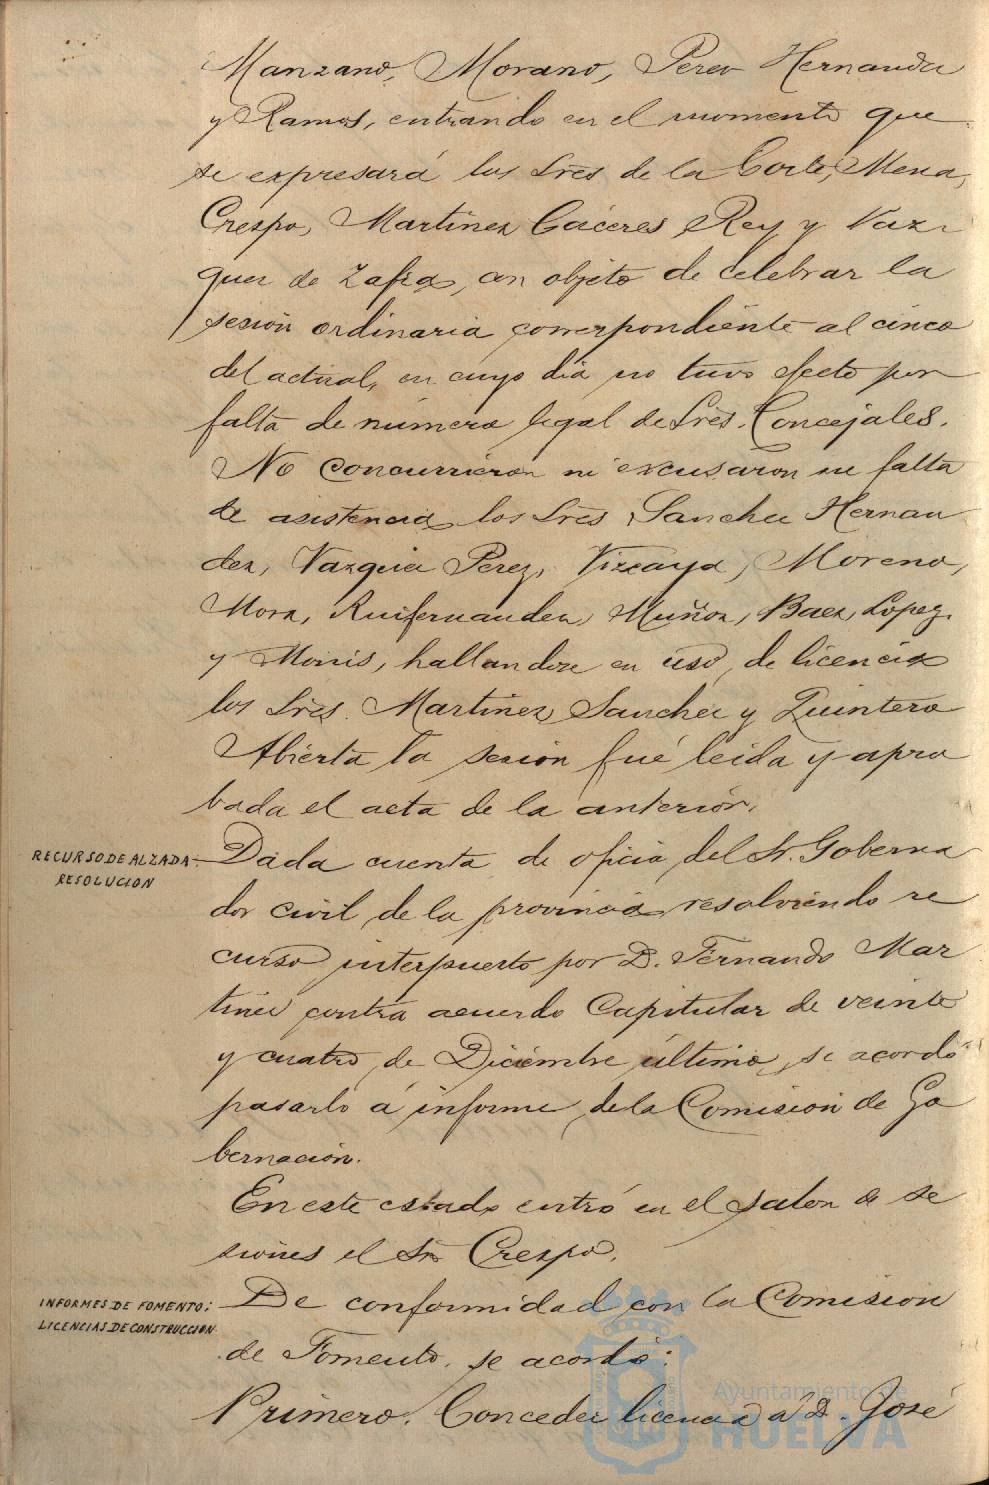 Manzano, Morano, Perez Hernandez
y Ramos, entrando en el momento que
se expresará los Sres de la Corte, Mena,
Crespo, Martinez Cáceres Rey y Vaz-
quez de Zafra, con objeto de celebrar la
sesión ordinaria correspondiente al cinco
del actual, en cuyo dia no tuvo efecto por
falta de número legal de Sres. Concejales.
No concurrieron ni excusaron su falta
de asistencia los Sres Sanchez Hernan
dez, Vazquez Perez, Vizcaya, Moreno,
Mora, Ruifernandez, Muñoz, Baez, Lopez
y Monis, hallandose en uso de licencia
los Sres. Martinez Sanchez y Quintero
Abierta la sesion fué leida y apro
bada el acta de la anterior.
RECURSO DE ALZADA-
RESOLUCION
Dada cuenta de oficio del Sr. Goberna
dor civil de la provincia resolviendo re
curso interpuesto por D. Fernando Mar
tinez contra acuerdo Capitular de veinte
y cuatro de Diciembre último, se acordó
pasarlo á informe de la Comision de Go
bernación.
En este estado entró en el salon de se
siones el Sr. Crespo.
INFORMES DE FOMENTO:
LICENCIAS DE CONSTRUCCION
De conformidad con la Comision
de Fomento, se acordó:
Primero. Conceder licencia á D. José
Ayuntamiento de
HUELVA